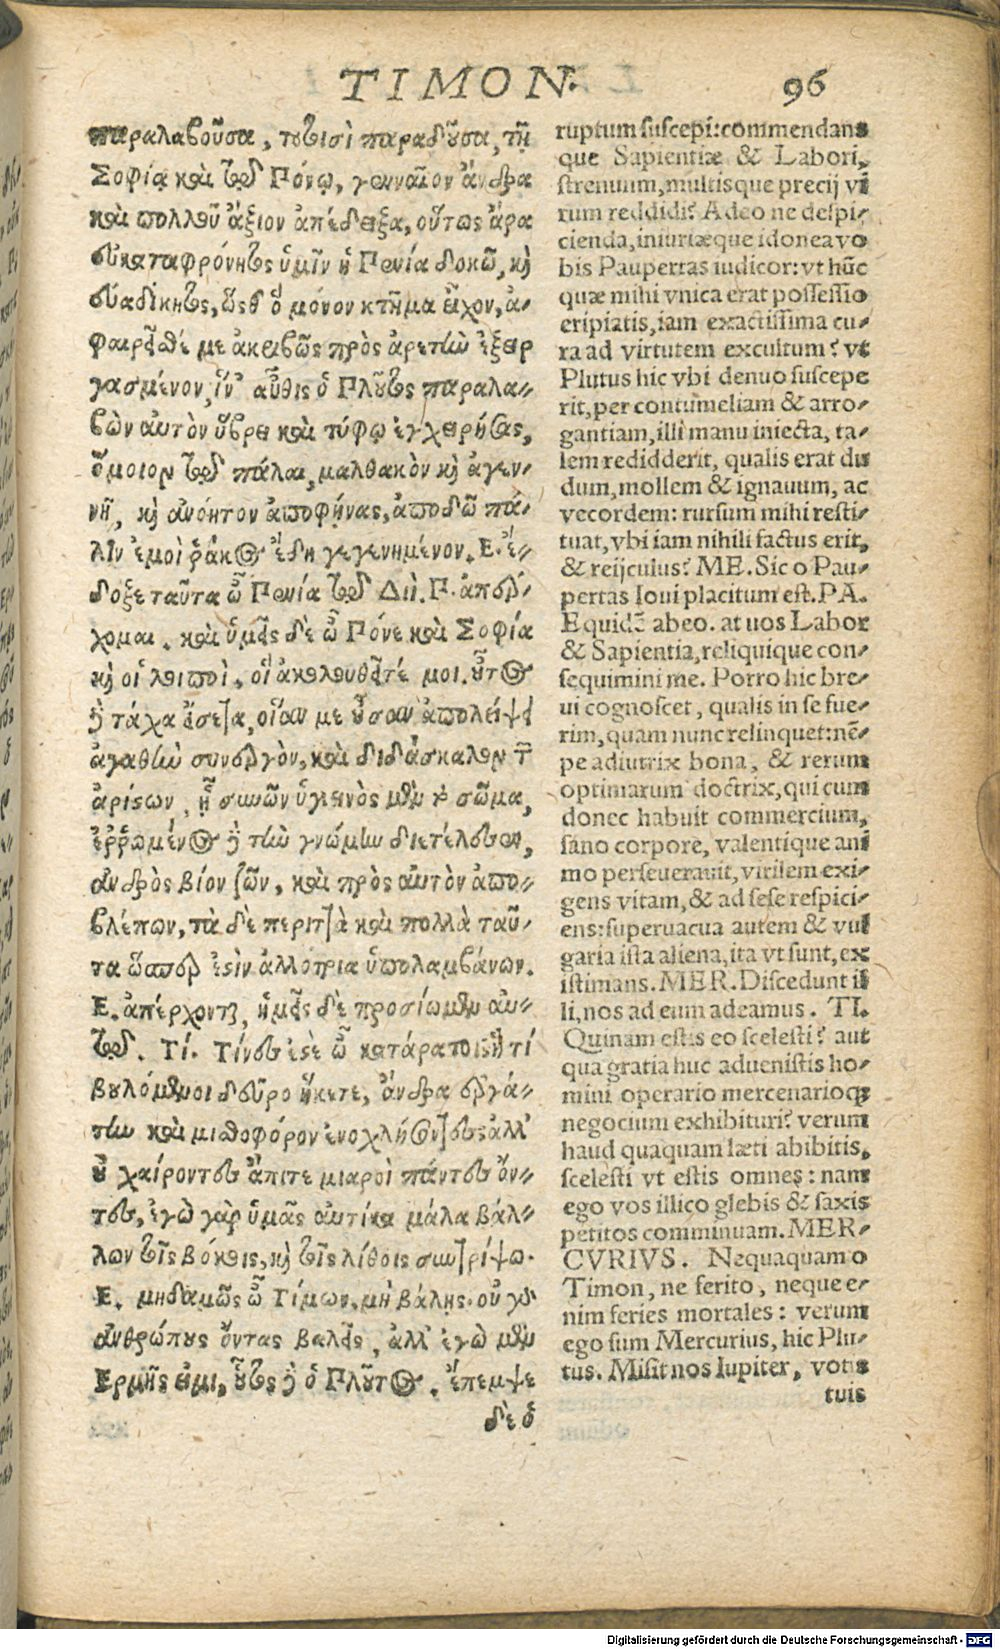 TIMON. 96
παραλαβοῦσα, τουτοισὶ παραδοῦσα, τῇ
Σοφίᾳ καὶ τῷ Πόνῳ, γενναῖον ἄνδρα
καὶ πολλοῦ ἄξιον ἀπέδειξα, οὕτως ἄρα
εὐκαταφρόνητος ὑμῖν ἡ Πενία δοκῶ, καὶ
εὐαδίκητος, ὥσθ' ὃ μόνον κτῆμα εἶχον, ἀ-
φαιρεῖσθέ με ἀκειβῶς πρὸς ἀρετὴν ἐξειρ
γασμένον, ἵν' αὖθις ὁ Πλοῦτος παραλα-
βὼν αὐτὸν ὕβρει καὶ τύφῳ ἐγχειρήσας,
ὅμοιον τῷ πάλαι, μαλθακὸν καὶ ἀγεν-
νῆ, καὶ ἀνόητον ἀποφήνας, ἀποδῶ πά-
λιν ἐμοὶ ῥάκος ἤδη γεγενημένον. Ε. ἔ-
δοξε ταῦτα ὦ Πενία τῷ Διί. Π. ἀπέρ-
χομαι. καὶ ὑμεῖς δὲ ὦ Πόνε καὶ Σοφία
καὶ οἱ λοιποὶ, οἳ ἀκολουθεῖτέ μοι. οὗτος
δὲ τάχα εἴσεται, οἵαν με οὖσαν ἀπολείψει
ἀγαθὴν συνεργὸν, καὶ διδάσκαλον τῶν
ἀρίστων, ᾗ συνὼν ὑγιεινὸς μὲν τὸ σῶμα,
ἐῤῥωμένος δὲ τὴν γνώμην διετέλεσεν,
ἀνδρὸς βίον ζῶν, καὶ πρὸς αὐτὸν ἀπο-
βλέπων, τὰ δὲ περιττὰ καὶ πολλὰ ταῦ-
τα ὥσπερ ἐστὶν ἀλλότρια ὑπολαμβάνων.
Ε. ἀπέρχονται, ἡμεῖς δὲ προσίωμεν αὐ-
τῷ. Τί. Τίνες ἐστὲ ὦ κατάρατοι; ἢ τί
βουλόμενοι δεῦρο ἥκετε, ἄνδρα ἐργά-
την καὶ μισθοφόρον ἐνοχλήσοντες; ἀλλ'
οὐ χαίροντες ἄπιτε μιαροὶ πάντες ὄν-
τες, ἐγὼ γὰρ ὑμᾶς αὐτίκα μάλα βάλ-
λων τοῖς βόλοις, καὶ τοῖς λίθοις συντρίψω.
Ε. μηδαμῶς ὦ Τίμων, μὴ βάλῃς. οὐ γὰρ
ἀνθρώπους ὄντας βαλεῖς, ἀλλ' ἐγὼ μὲν
Ερμῆς εἰμι, οὗτος δὲ ὁ Πλοῦτος. ἔπεμψε
δὲ ὁ
ruptum suscepi: commendans
que Sapientiæ & Labori,
strenuum, multisque precij vi
rum reddidi? Adeo ne despi-
cienda, iniuriæque idonea vo
bis Paupertas iudicor: vt hũc
quæ mihi vnica erat possessio
eripiatis, iam exactissima cu-
ra ad virtutem excultum? vt
Plutus hic vbi denuo suscepe
rit, per contumeliam & arro-
gantiam, illi manu iniecta, ta-
lem redidderit, qualis erat du
dum, mollem & ignauum, ac
vecordem: rursum mihi resti-
tuat, vbi iam nihili factus erit,
& reijculus? ME. Sic o Pau-
pertas Ioui placitum est. PA.
Equidẽ abeo. at uos Labor
& Sapientia, reliquique con-
sequimini me. Porro hic bre-
ui cognoscet, qualis in se fue-
rim, quam nunc relinquet: nẽ-
pe adiutrix bona, & rerum
optimarum doctrix, qui cum
donec habuit commercium,
sano corpore, valentique ani
mo perseuerauit, virilem exi-
gens vitam, & ad sese respici-
ens: superuacua autem & vul
garia ista aliena, ita vt sunt, ex
istimans. MER. Discedunt il
li, nos ad eum adeamus. TI.
Quinam estis eo scelesti? aut
qua gratia huc aduenistis ho-
mini operario mercenarioq́;
negocium exhibituri? verum
haud quaquam læti abibitis,
scelesti vt estis omnes: nam
ego vos illico glebis & saxis
petitos comminuam. MER-
CVRIVS. Nequaquam o
Timon, ne ferito, neque e-
nim feries mortales: verum
ego sum Mercurius, hic Plu-
tus. Misit nos Iupiter, votis
tuis
Digitalisierung gefördert durch die Deutsche Forschungsgemeinschaft - DFG